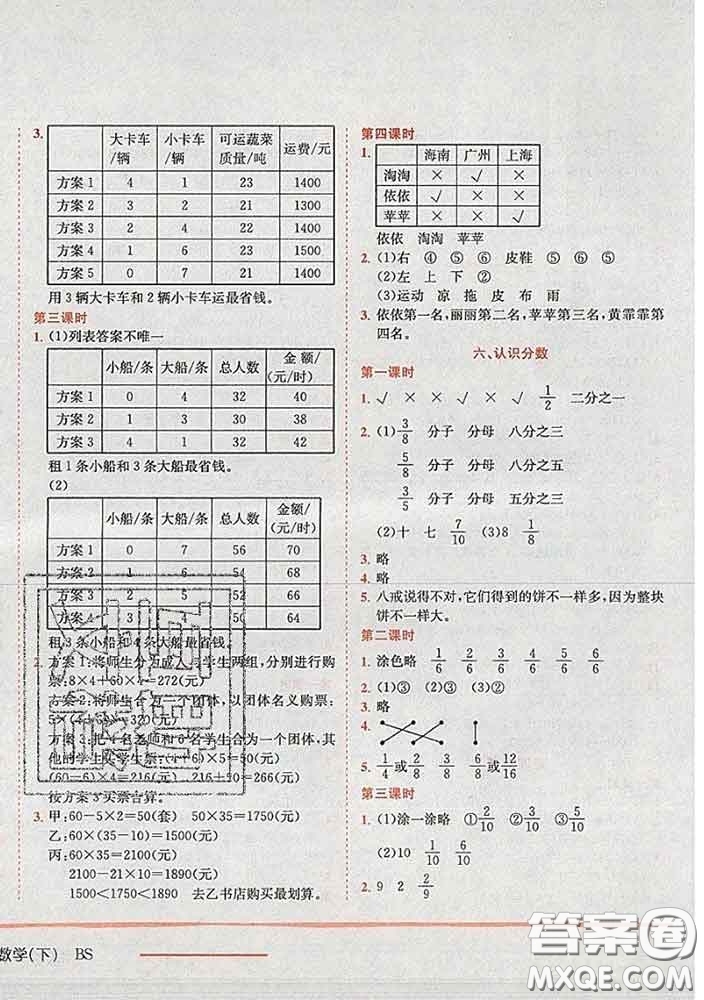 3.
大卡车/辆 小卡车/辆 可运蔬菜质量/吨 运费/元
方案1 4 1 23 1400
方案2 3 2 21 1300
方案3 2 4 22 1400
方案4 1 6 23 1500
方案5 0 7 21 1400
用3辆大卡车和2辆小卡车运最省钱。
第三课时
1. (1)列表答案不唯一
小船/条 大船/条 总人数 金额/(元/时)
方案1 0 4 32 40
方案2 1 3 30 38
方案3 4 1 32 42
租1条小船和3条大船最省钱。
(2)
小船/条 大船/条 总人数 金额/(元/时)
方案1 0 7 56 70
方案2 1 6 54 68
方案3 2 5 52 66
方案4 3 4 50 64
租3条小船和4条大船最省钱。
2. 方案1:将师生分为成人与学生两组,分别进行购
票:8×4+60×4=272(元)
方案2:将师生合为一个团体,以团体名义购票:
=320(元)
方案3:把4名老师和6名学生合为一个团体,其
他的学生买学生票:(4+6)×5=50(元)
(60-6)×4=216(元) 216+50=266(元)
按方案3买票合算。
3. 甲:60-5×2=50(套) 50×35=1750(元)
乙:60×(35-10)=1500(元)
丙:60×35=2100(元)
2100-21×10=1890(元)
1500<1750<1890 去乙书店购买最划算。
数学(下) BS
第四课时
1.
海南 广州 上海
淘淘 × √ ×
依依 √ × ×
苹苹 × × √
依依 淘淘 苹苹
2. (1)右 ④ ⑤ ⑥ 皮鞋 ⑤ ⑥
(2)左 上 下 ②
(3)运动 凉 拖 皮 布 雨
3. 依依第一名,丽丽第二名,苹苹第三名,黄霏霏第
四名。
六、认识分数
第一课时
1. √ × × √ × √ 1/2 二分之一
2. (1)3/8 分子 分母 八分之三
5/8 分子 分母 八分之五
3/5 分子 分母 五分之三
(2)十 七 7/10 (3)8 1/8
3. 略
4. 略
5. 八戒说得不对,它们得到的饼不一样多,因为整块
饼不一样大。
第二课时
1. 涂色略 1/6 2/6 3/6 4/6 5/6
2. (1)③ (2)①③
3. 略
4.
5. 1/4或2/8 3/8 6/8或12/16
第三课时
1. (1)涂一涂略 ①2/10 ③3/10 ③5/10
(2)10 1/10 6/10 4/10
2. 9 2 2/9
答案圈
MXQE.COM